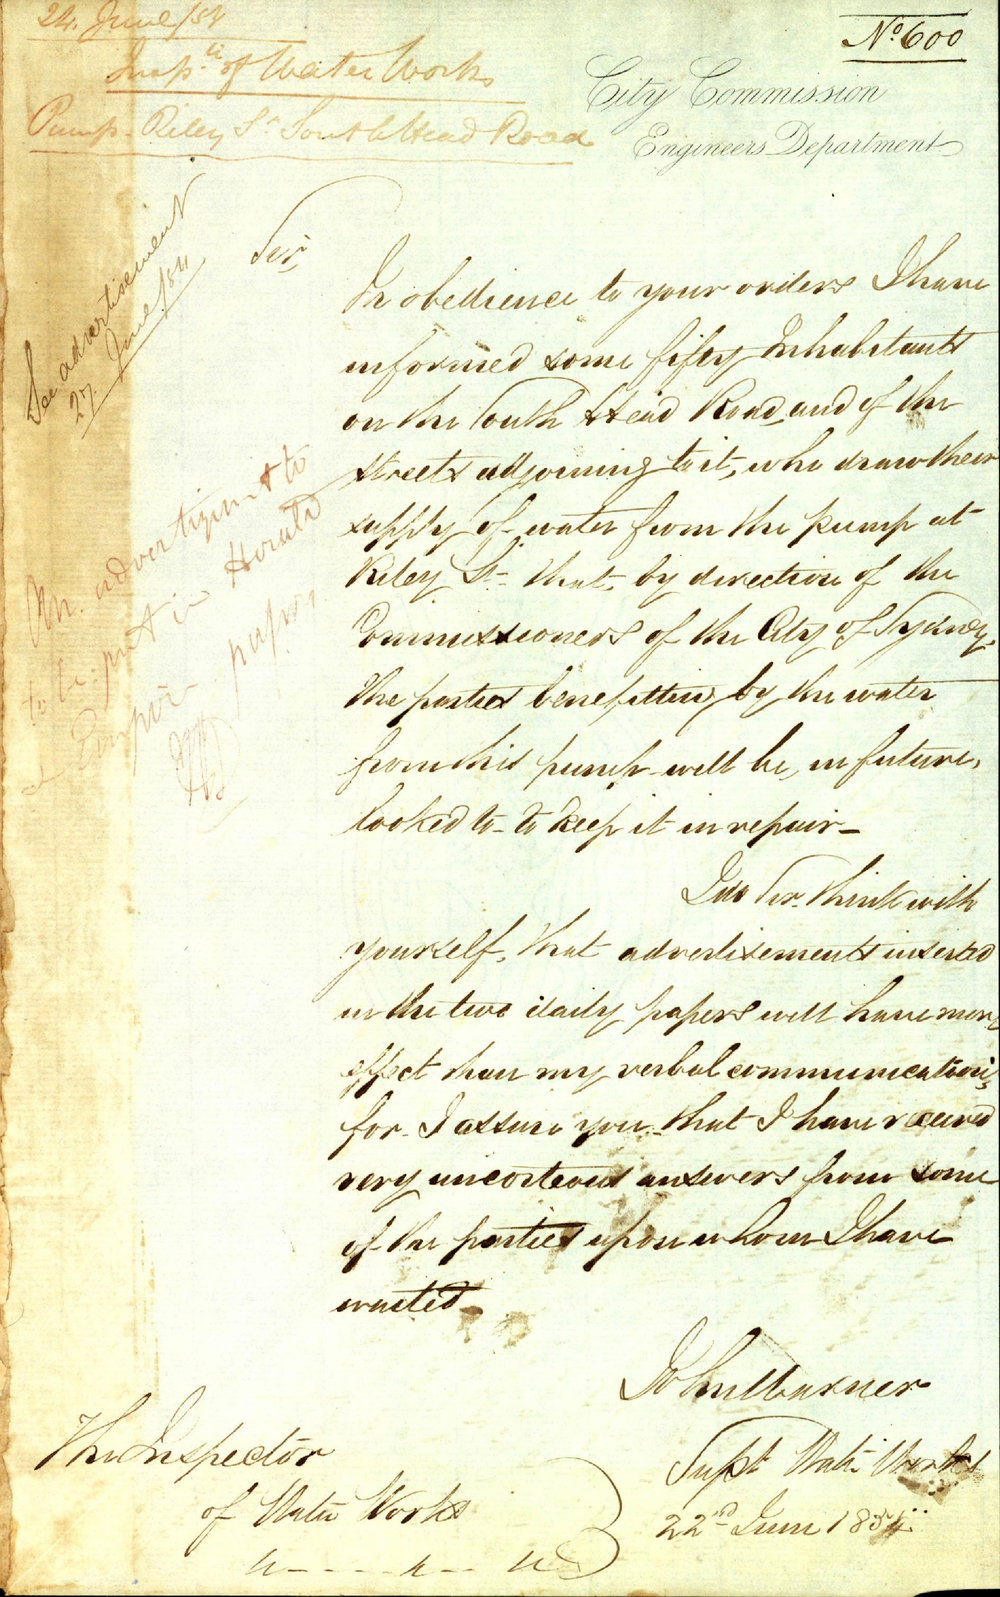 24. June/54
Insp.tr of Water Works
Pump - Riley St South Head Road
No. 600
City Commission
Engineers Department
See advertisement
27 June/54
An advertizement to
be put in Herald
& Empire papers
Sir,
In obedience to your orders I have
informed some fifty Inhabitants
on the South Head Road, and of the
streets adjoining to it, who draw their
supply of water from the pump at
Riley St. that, by direction of the
Commissioners of the City of Sydney,
the parties benefitting by the water
from this pump will be, in future,
looked to - to keep it in repair -
I do Sir. think with
yourself, that advertisements inserted
in the two daily papers will have more
effect than my verbal communication;
for - I assure you - that I have received
very uncorteous answers from some
of the parties upon whom I have
waited
John Warner
Supt Water Works
22nd June 1854
The Inspector
of Water Works